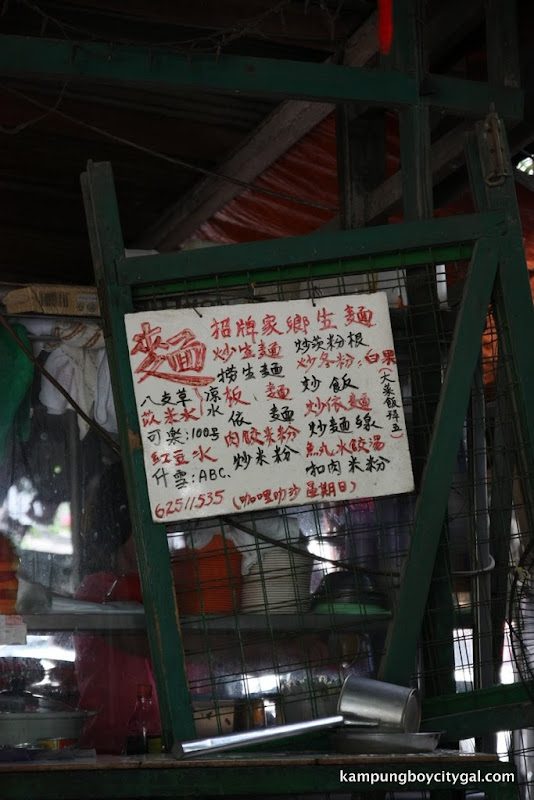 麵
招牌家鄉生麵
炒生麵
捞生麵
板麵
依麵
肉餃米粉
炒米粉
炒茨粉根
炒冬粉：白果
炒飯
炒依麵
炒麵線
魚丸水餃湯
扣肉米粉
(大菜飯拜五)
八支草
苡米水
凉水
可樂:100号
紅豆水
什雪:ABC.
62511535 (咖哩叻沙星期日)
kampungboycitygal.com